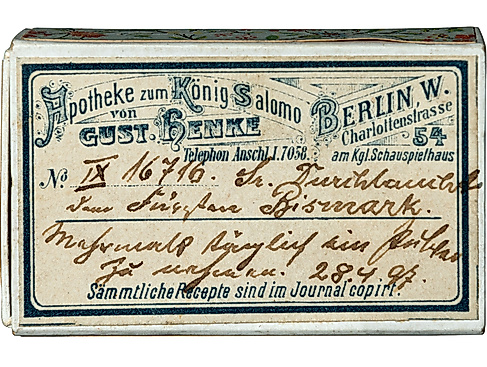 Apotheke zum König Salomo
von
GUST. HENKE
BERLIN, W.
Charlottenstrasse
54
Telephon Anschl. 1. 7058.
am Kgl. Schauspielhaus
No IX 16716. Sr. Durchlaucht
dem Fürsten Bismark.
Mehrmals täglich ein Pulver
zu nehmen. 28.4.97.
Sämmtliche Recepte sind im Journal copirt.